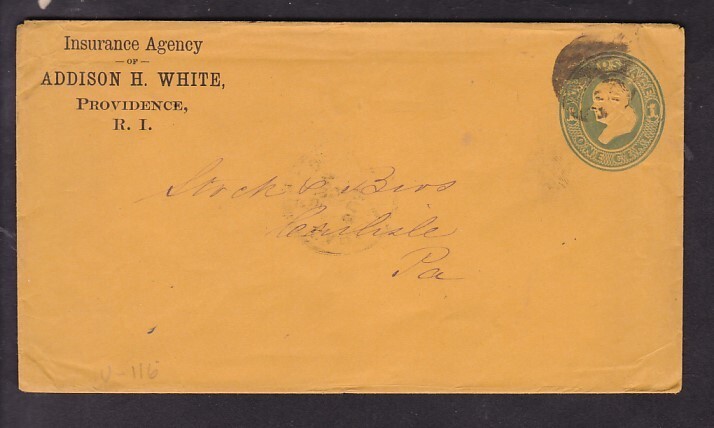 Insurance Agency
OF
ADDISON H. WHITE,
PROVIDENCE,
R. I.
U.S. POSTAGE
1 1
ONE CENT
& Bros
Carlisle
Pa
U-116